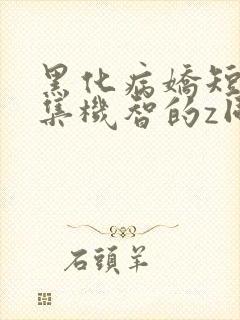 黑化病嬌短
集機智的z同
石頭羊